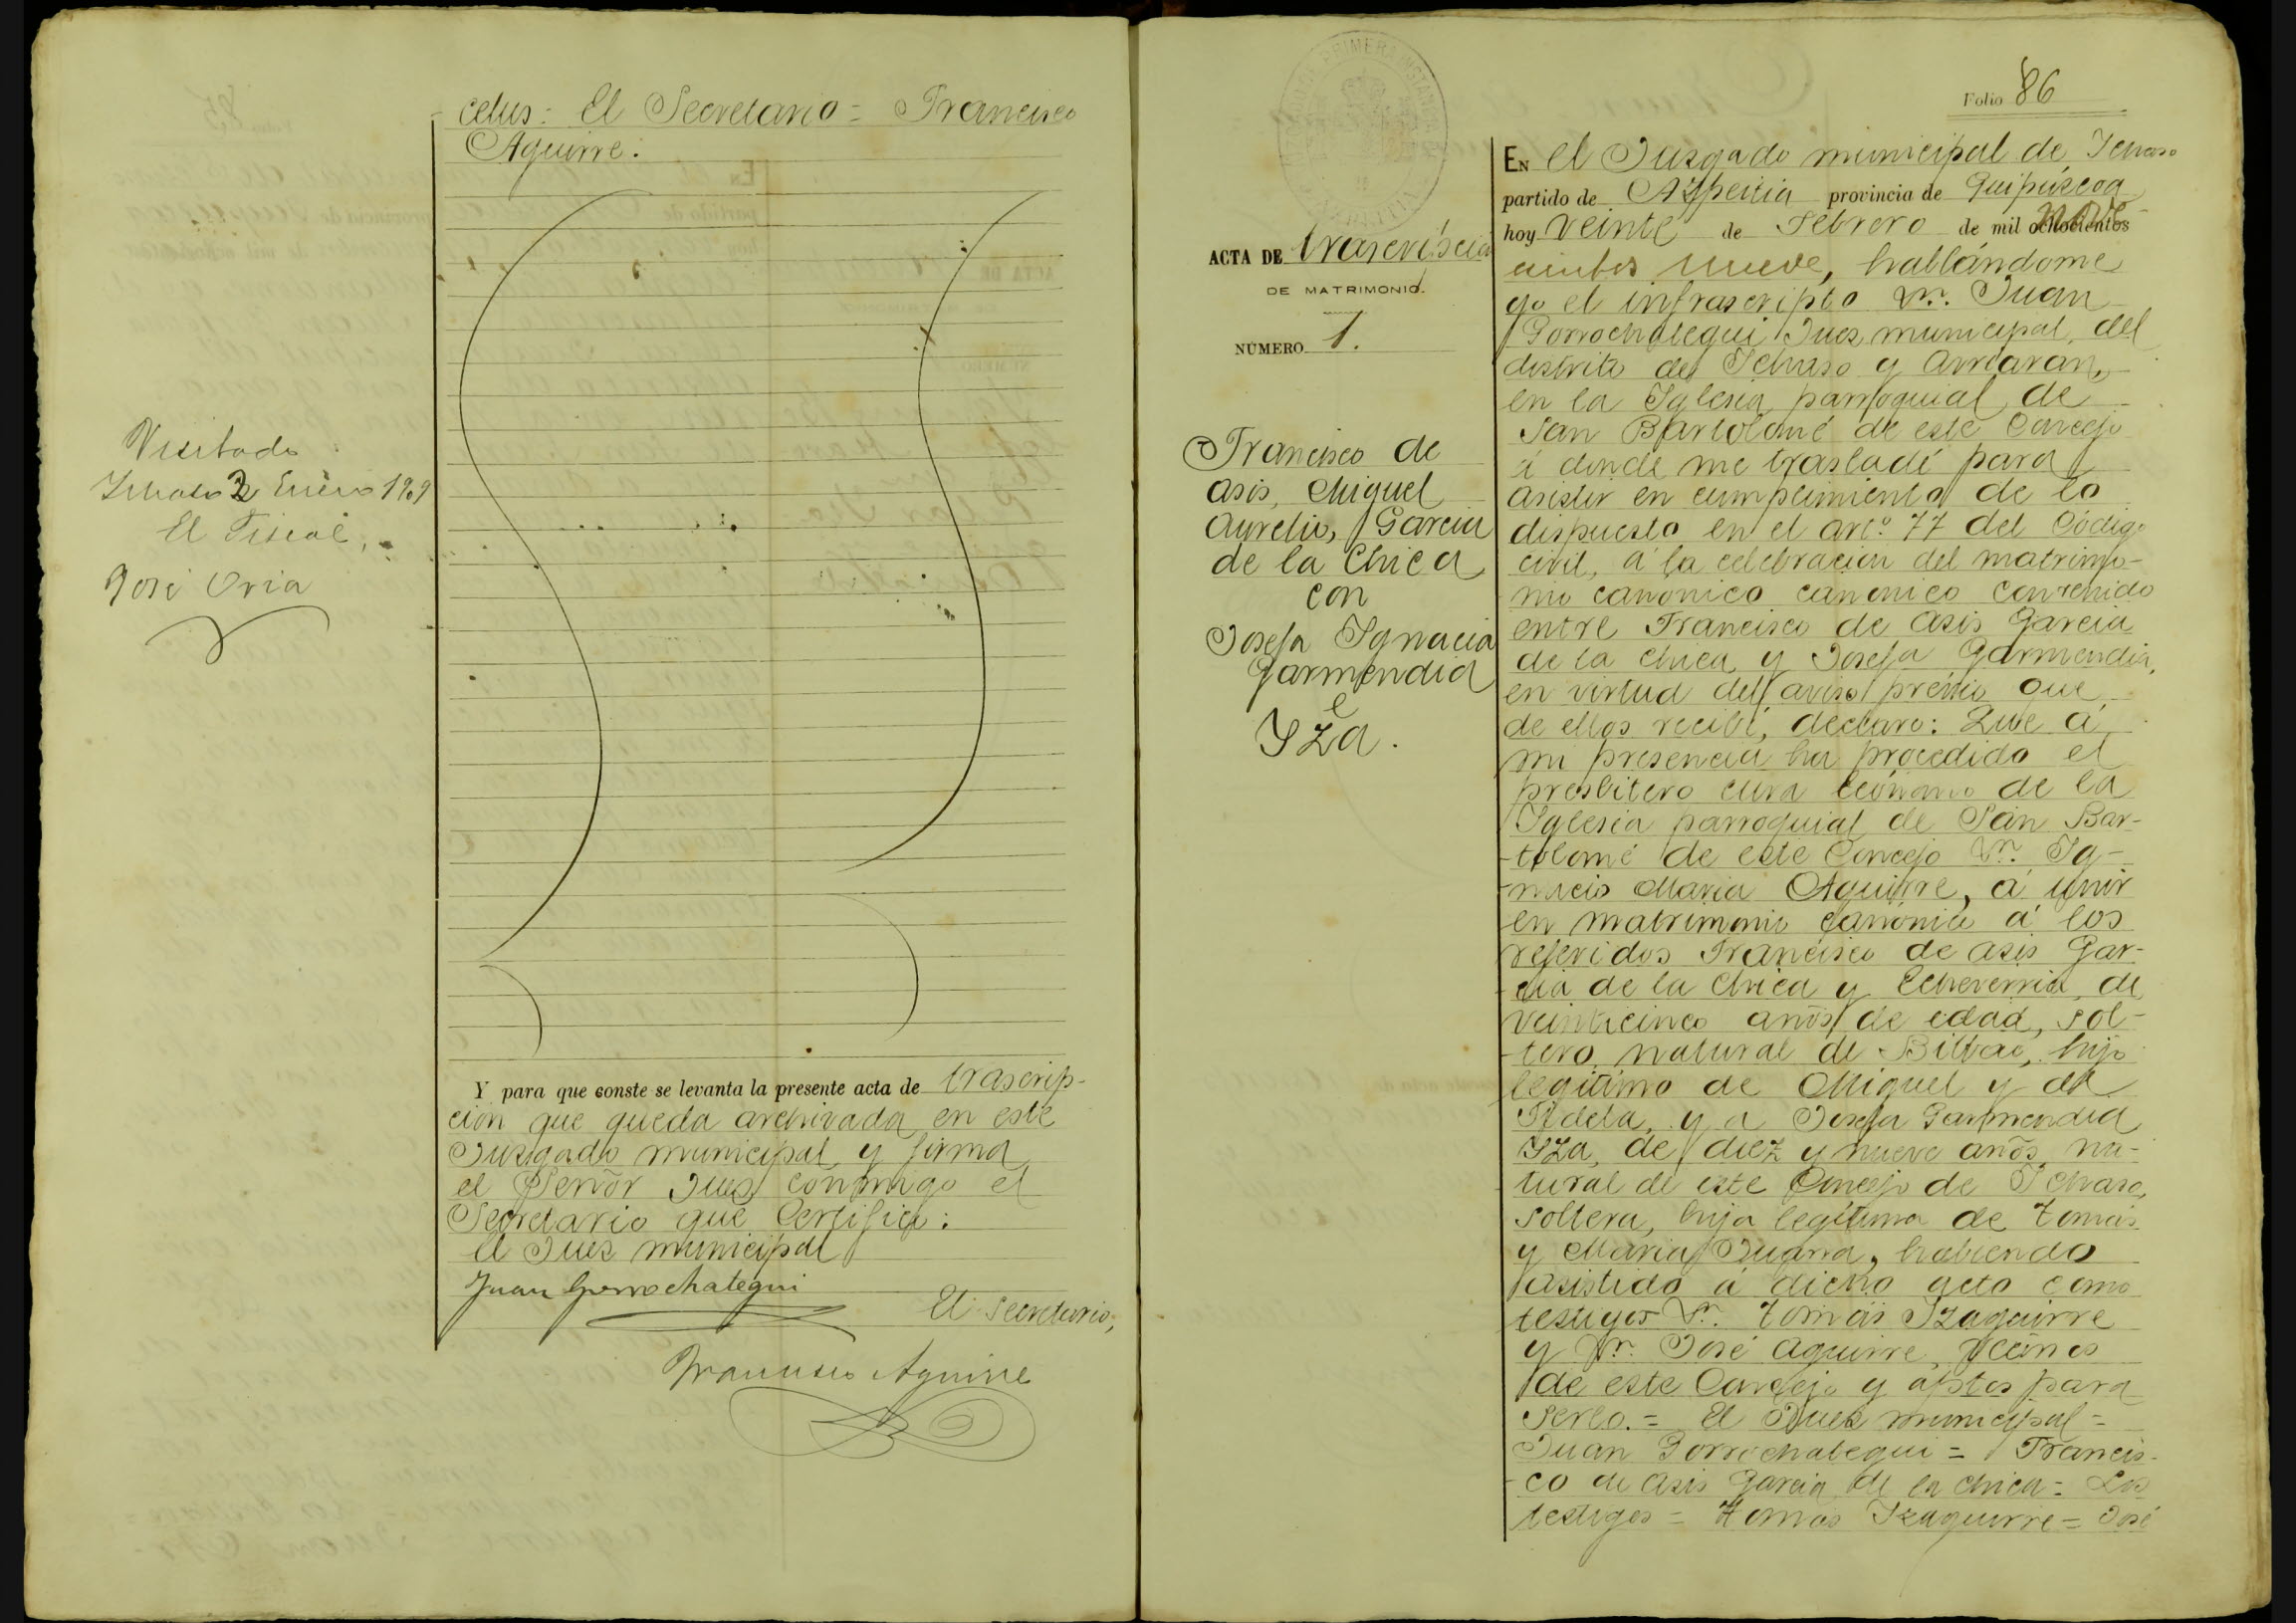 celus = El Secretario = Francisco
Aguirre.
Visitado
Ichaso 2 Enero 1909
El Fiscal,
José Oria
Y para que conste se levanta la presente acta de trascrip-
ción que queda archivada en este
Juzgado municipal, y firma
el Señor Juez conmigo el
Secretario que Certifico:
El Juez municipal
Juan Gorrochategui
El Secretario,
Francisco Aguirre
Folio 86
ACTA DE trascripción
DE MATRIMONIO.
NÚMERO 1.
Francisco de
Asis, Miguel
Aurelio, Garcia
de la Chica
con
Josefa Ignacia
Garmendia
e
Yza.
EN el Juzgado municipal de Ichaso
partido de Azpeitia provincia de Guipúzcoa
hoy veinte de Febrero de mil ochocientos nove-
cientos nueve, hallándome
yo el infrascripto Dn. Juan
Gorrochategui Juez municipal, del
distrito de Ichaso y Arriaran,
en la Iglesia parroquial de
San Bartolomé de este Concejo
á donde me trasladé para
asistir en cumplimiento de lo
dispuesto en el artº. 77 del Código
civil, á la celebracion del matrimo-
nio canonico canonico convenido
entre Francisco de Asis Garcia
de la Chica y Josefa Garmendia,
en virtud del aviso prévio que
de ellos recibí, declaro: Que á
mi presencia ha procedido el
presbitero cura ecónomo de la
Iglesia parroquial de San Bar-
-tolomé de este Concejo Dn. Ig-
-nacio Maria Aguirre, á unir
en matrimonio canónico á los
referidos Francisco de Asis Gar-
-cia de la Chica y Echeverria, de
veinticinco años de edad, sol-
-tero, natural de Bilbao, hijo
legítimo de Miguel y de
Fidela, y a Josefa Garmendia
Yza, de diez y nueve años, na-
tural de este Concejo de Ichaso,
soltera, hija legítima de Tomás
y Maria Juana, habiendo
asistido á dicho acto como
testigos Dn. Tomás Yzaguirre
y Dn. José Aguirre, vecinos
de este Concejo y aptos para
serlo. = El Juez municipal =
Juan Gorrochategui = Francis-
-co de Asis Garcia de la Chica = Los
testigos = Tomas Yzaguirre = José